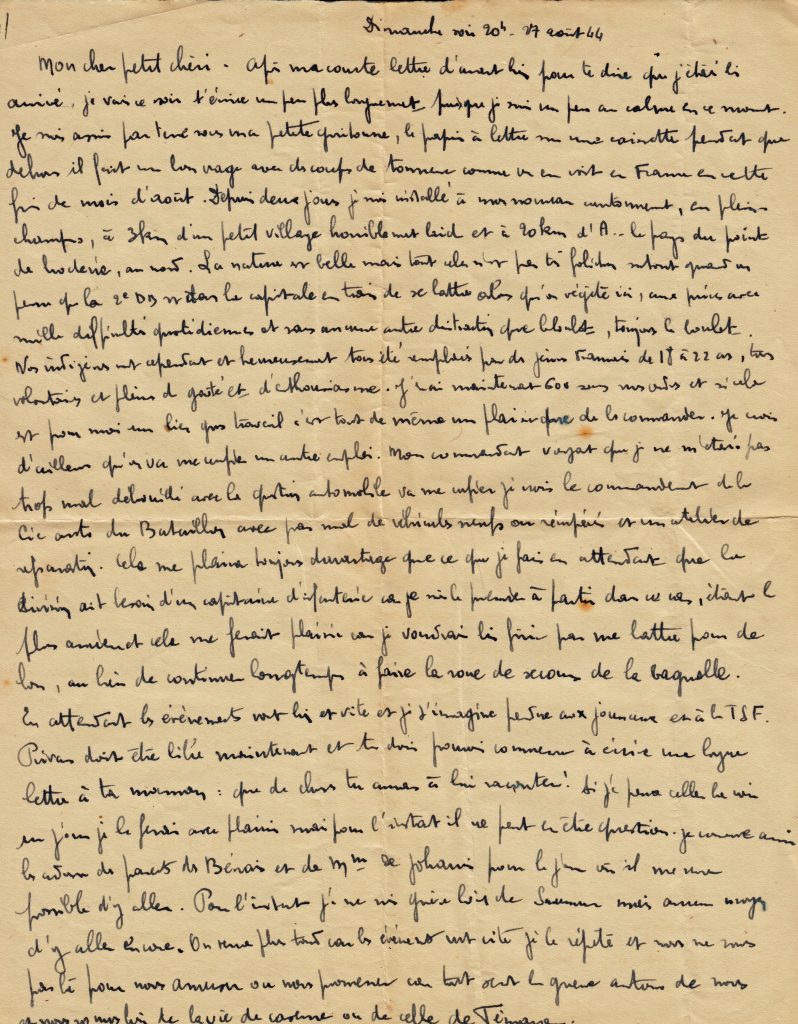 Dimanche soir 20h - 27 août 44
Mon cher petit chéri. Après ma courte lettre d'avant hier pour te dire que j'étais bien
arrivé, je vais ce soir t'écrire un peu plus longuement puisque je suis un peu au calme en ce moment.
Je suis assis par terre sous ma petite guitoune, le papier à lettre sur une caissette pendant que
dehors il fait un bon orage avec des coups de tonnerre comme on en voit en France en cette
fin de mois d'août. Depuis deux jours je suis installé à mon nouveau cantonnement, en plein
champs, à 3km d'un petit village horriblement laid et à 20km d'A... le pays du point
de broderie, au nord. La nature est belle mais tout cela n'est pas très folichon surtout quand on
pense que la 2e DB est dans la capitale en train de se battre alors qu'on végète ici, aux prises avec
mille difficultés quotidiennes et sans aucune autre distraction que le boulot, toujours le boulot.
Nos indigènes ont cependant et heureusement tous été remplacés par de jeunes Français de 18 à 22 ans, tous
volontaires et pleins de gaité et d'enthousiasme. J'en ai maintenant 600 sous mes ordres et si cela
est pour moi un bien gros travail c'est tout de même un plaisir que de les commander. Je crois
d'ailleurs qu'on va me confier un autre emploi. Mon commandant voyant que je ne m'étais pas
trop mal débrouillé avec la question automobile va me confier je crois le commandement de la
Cie auto du Bataillon avec pas mal de véhicules neufs ou récupérés et un atelier de
réparation. Cela me plaira toujours davantage que ce que je fais en attendant que la
division ait besoin d'un capitaine d'infanterie car je suis le premier à partir dans ce cas, étant le
plus ancien et cela me ferait plaisir car je voudrais bien finir par me battre pour de
bon, au lieu de continuer longtemps à faire la roue de secours de la bagnole.
En attendant les évènements vont bien et vite et je t'imagine pendue aux journaux et à la TSF.
Privas doit être libéré maintenant et tu dois pouvoir commencer à écrire une longue
lettre à ta maman : que de choses tu auras à lui raconter! Si je peux aller la voir
un jour je le ferai avec plaisir mais pour l'instant il ne peut en être question. Je conserve aussi
les adresses des parents des Bénais et de Mme de Johanis pour le jour où il me sera
possible d'y aller. Pour l'instant je ne suis guère loin de Saumur mais aucun moyen
d'y aller encore. On verra plus tard car les évènements vont vite je le répète et nous ne sommes
pas là pour nous amuser ou nous promener car tout sent la guerre autour de nous
et nous sommes loin de la vie de caserne ou de celle de Témara.